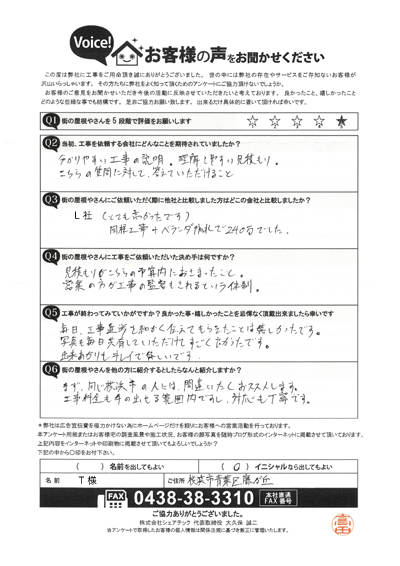 Voice!
お客様の声をお聞かせください
この度は弊社に工事をご用命頂き誠にありがとうございました。世の中には弊社の存在やサービスをご存知ないお客様が
沢山いらっしゃいます。その方たちに弊社をよく知って頂くためのアンケートにご協力頂けないでしょうか。
お客様のご意見をお聞かせいただき今後の活動に反映させていただきたいと考えております。良かったこと、嬉しかったこと
どのような些細な事でも結構です。是非ご協力お願い致します。出来るだけ具体的に書いて頂ければ幸いです。
Q1 街の屋根やさんを5段階で評価をお願いします ☆ ☆ ☆ ☆ ★
Q2 当初、工事を依頼する会社にどんなことを期待されていましたか?
分かりやすい工事の説明。理解しやすい見積もり。
こちらの質問に対して、答えていただけること
Q3 街の屋根やさんにご依頼いただく際に他社と比較しました方はどこの会社と比較しましたか?
L社 (とても高かったです)
同様工事+ベランダ 札で240万でした。
Q4 街の屋根やさんに工事をご依頼いただいた決め手は何ですか?
見積もりがこちらの予算内におさまったこと。
営業の方が工事の監督もされるという体制。
Q5 工事が終わってみていかがですか?良かった事・嬉しかったことを忌憚なく頂戴出来ましたら幸いです
毎日、工事箇所を細かく伝えてもらえたことは嬉しかったです。
写真も毎日共有していただけてすごく良かったです。
出来あがりもキレイで嬉しいです。
Q6 街の屋根やさんを他の方に紹介するとしたらなんと紹介しますか?
まず、同じ横浜市の人には、間違いなくおススメします。
工事料金も手の出せる範囲内ですし、対応も丁寧です。
*弊社は広告宣伝費を極力かけない為にホームページだけを頼りにお客様への営業活動を行っております。
本アンケート用紙またはお客様宅の調査風景や施工状況、お客様の顔写真を随時ブログ形式のインターネットに掲載させて頂いております。
上記内容をインターネットや印刷物に掲載させて頂いてもよろしいでしょうか?
下記の中から○印をお付下さい。
( )名前を出してもよい (○)イニシャルなら出してもよい
名前 T様 ご住所 横浜市青葉区藤が丘
FAX 0438-38-3310 本社直通 FAX番号
ご協力ありがとうございました。
株式会社シェアテック 代表取締役 大久保 誠二
当アンケートで取得したお客様の個人情報は関係法規に基づき厳正に管理いたします。